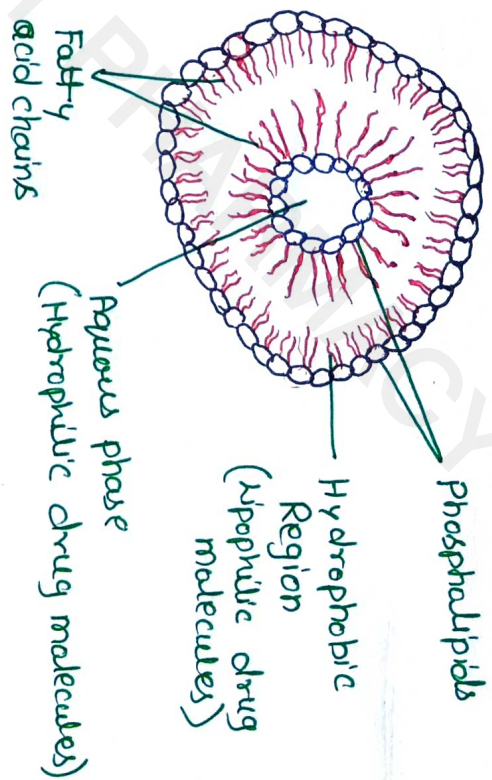 Phosphalipids
Hydrophobic
Region
(Lipophilic drug
molecules)
Aquous phase
(Hydrophilic drug molecules)
Fatty
acid chains
PHARMACY